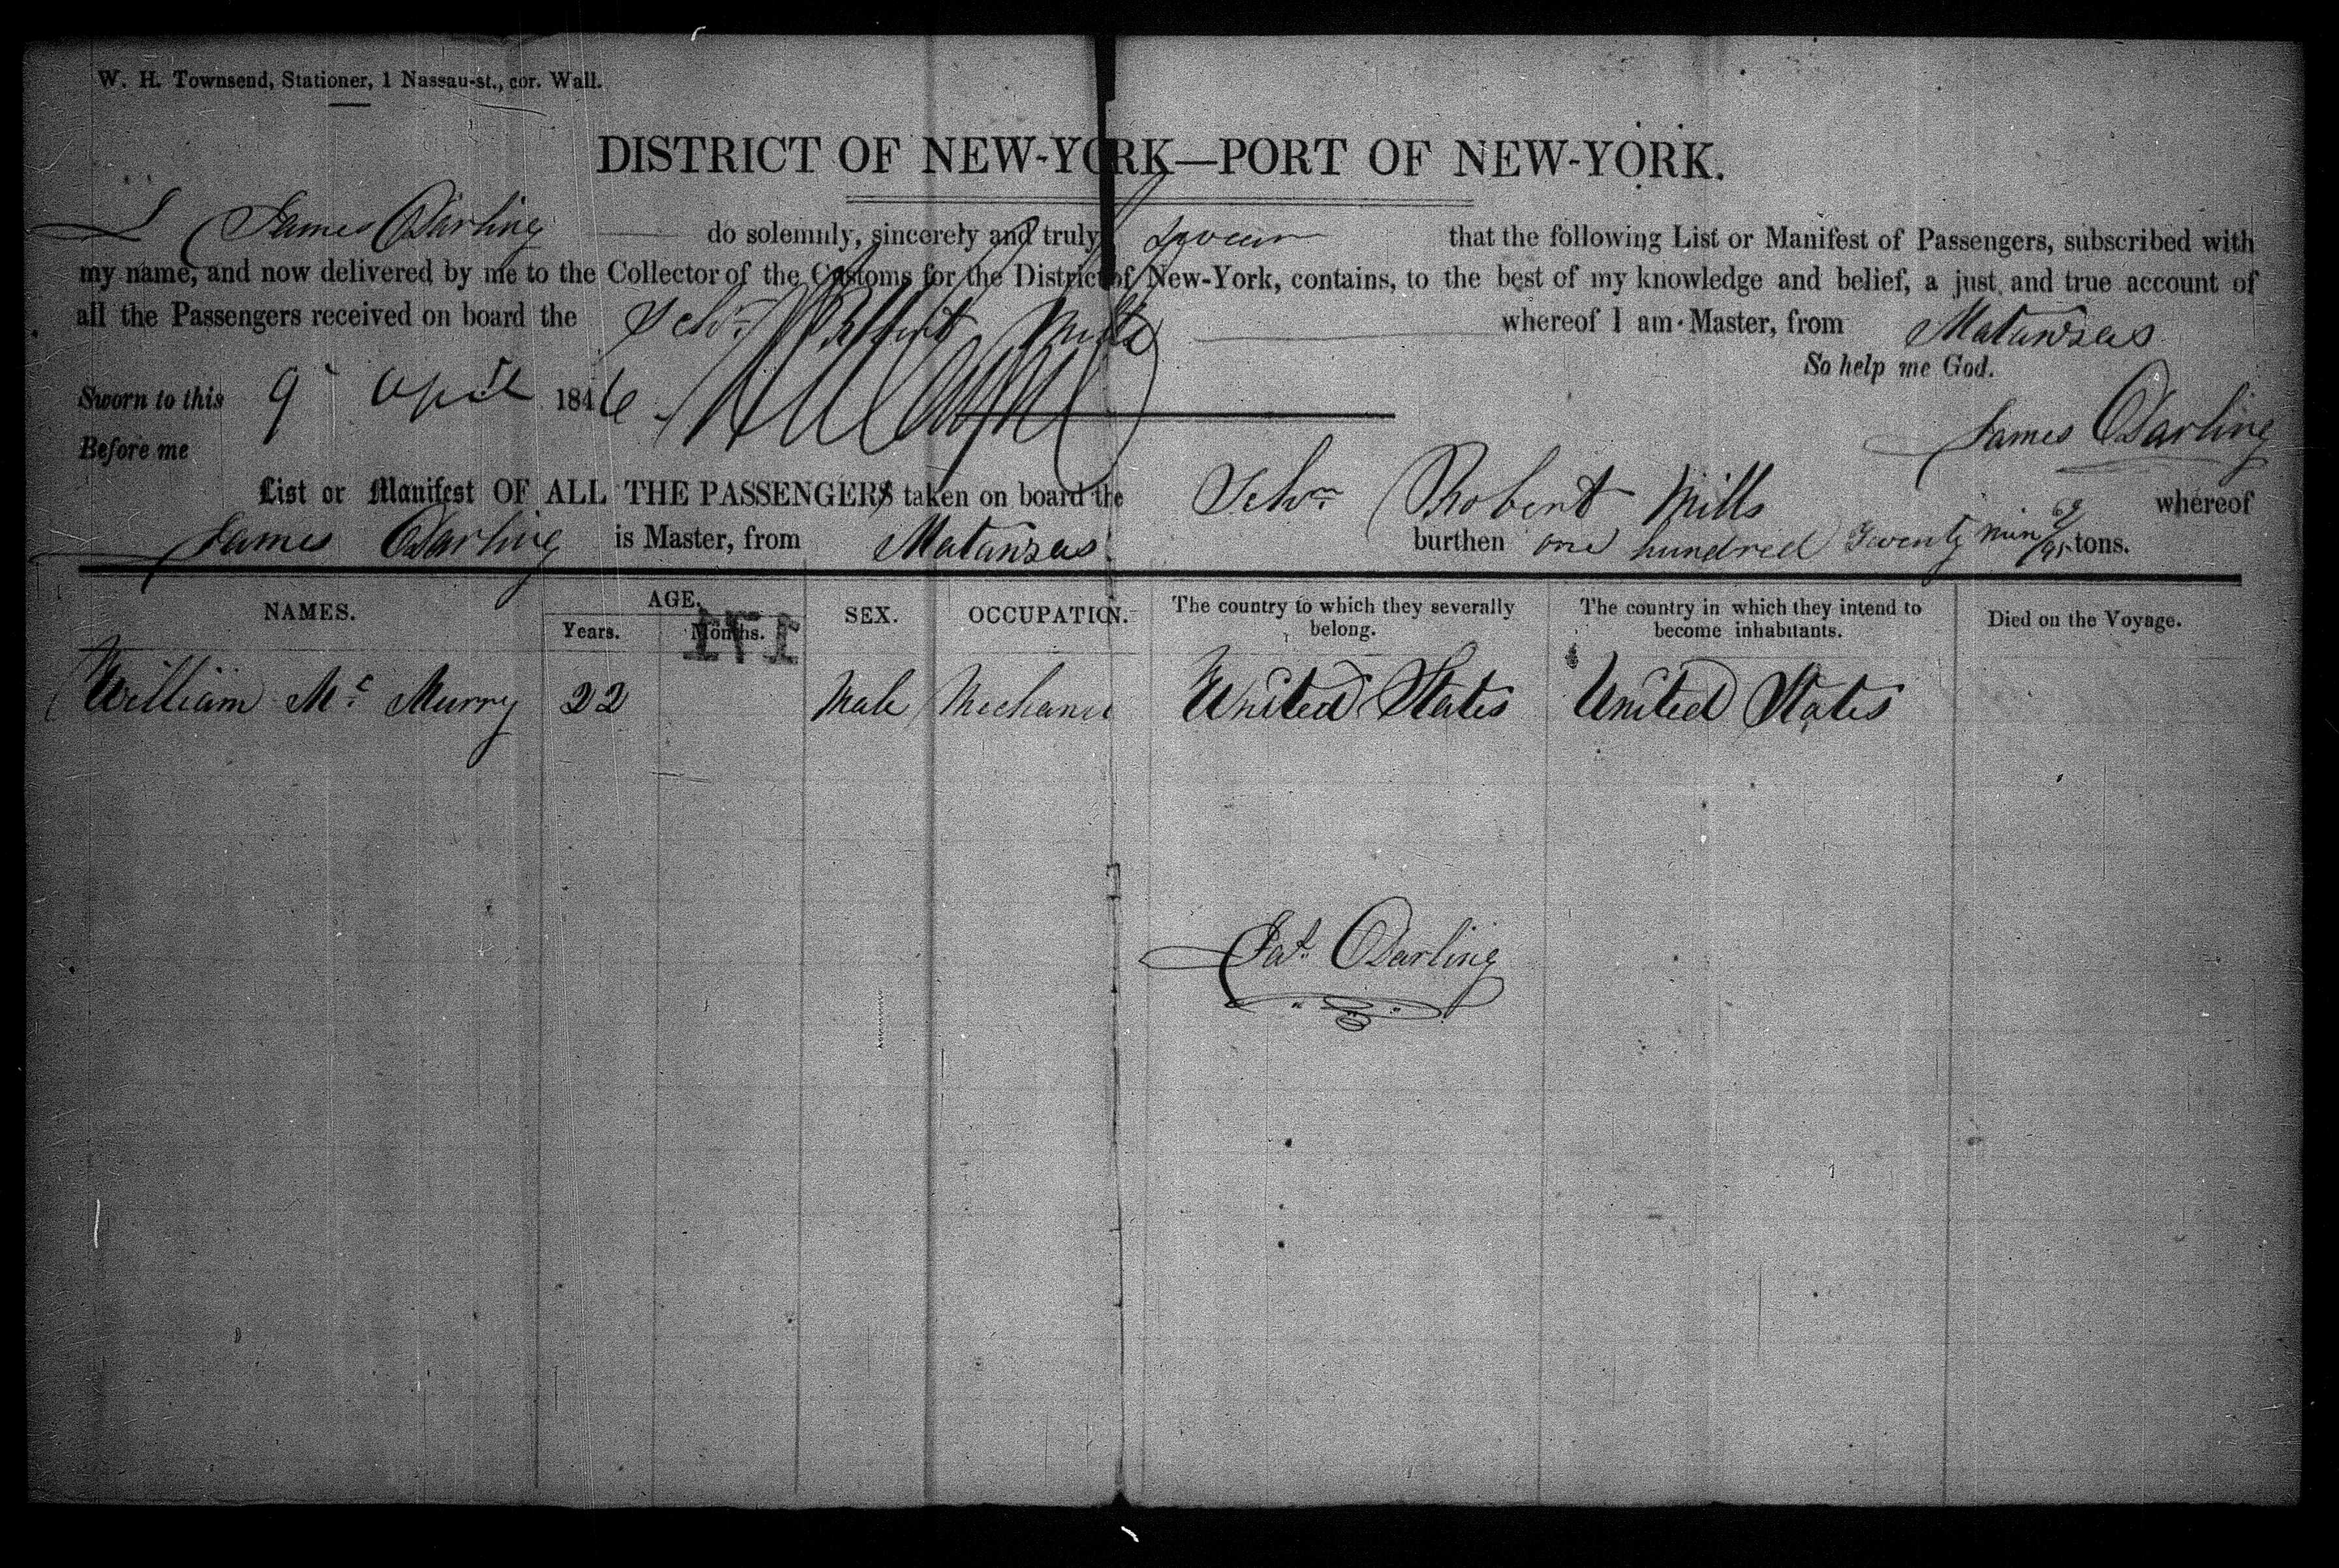 W. H. Townsend, Stationer, 1 Nassau-st., cor. Wall.
DISTRICT OF NEW-YORK—PORT OF NEW-YORK.
I James Darling do solemnly, sincerely and truly swear that the following List or Manifest of Passengers, subscribed with
my name, and now delivered by me to the Collector of the Customs for the District of New-York, contains, to the best of my knowledge and belief, a just and true account of
all the Passengers received on board the Schr Robert Mills whereof I am Master, from Matanzas
So help me God.
Sworn to this 9 April 1846
James Darling
Before me
List or Manifest OF ALL THE PASSENGERS taken on board the Schr Robert Mills whereof
James Darling is Master, from Matanzas burthen one hundred Twenty nine 69/95 tons.
NAMES. AGE. SEX. OCCUPATION. The country to which they severally belong. The country in which they intend to become inhabitants. Died on the Voyage.
Years. Months.
171
William Mc Murry 22 Male Mechanic United States United States
Jas. Darling